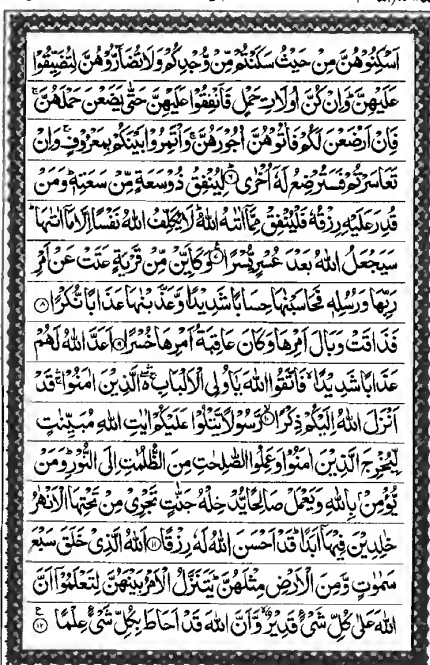 اَسْكِنُوْهُنَّ مِنْ حَيْثُ سَكَنْتُمْ مِّنْ وُّجْدِكُمْ وَلَا تُضَآرُّوْهُنَّ لِتُضَيِّقُوْا
عَلَيْهِنَّ ؕ وَاِنْ كُنَّ اُولَاتِ حَمْلٍ فَاَنْفِقُوْا عَلَيْهِنَّ حَتّٰى يَضَعْنَ حَمْلَهُنَّ ۚ
فَاِنْ اَرْضَعْنَ لَكُمْ فَاٰتُوْهُنَّ اُجُوْرَهُنَّ ۚ وَاْتَمِرُوْا بَيْنَكُمْ بِمَعْرُوْفٍ ۚ وَاِنْ
تَعَاسَرْتُمْ فَسَتُرْضِعُ لَهٗۤ اُخْرٰى ﴿۶﴾ لِيُنْفِقْ ذُوْ سَعَةٍ مِّنْ سَعَتِهٖ ؕ وَمَنْ
قُدِرَ عَلَيْهِ رِزْقُهٗ فَلْيُنْفِقْ مِمَّاۤ اٰتٰىهُ اللّٰهُ ؕ لَا يُكَلِّفُ اللّٰهُ نَفْسًا اِلَّا مَاۤ اٰتٰىهَا ؕ
سَيَجْعَلُ اللّٰهُ بَعْدَ عُسْرٍ يُّسْرًا ﴿۷﴾ وَكَاَيِّنْ مِّنْ قَرْيَةٍ عَتَتْ عَنْ اَمْرِ
رَبِّهَا وَرُسُلِهٖ فَحَاسَبْنٰهَا حِسَابًا شَدِيْدًا ۙ وَّعَذَّبْنٰهَا عَذَابًا نُّكْرًا ﴿۸﴾
فَذَاقَتْ وَبَالَ اَمْرِهَا وَكَانَ عَاقِبَةُ اَمْرِهَا خُسْرًا ﴿۹﴾ اَعَدَّ اللّٰهُ لَهُمْ
عَذَابًا شَدِيْدًا ۙ فَاتَّقُوا اللّٰهَ يٰۤاُولِى الْاَلْبَابِ ۛۚ الَّذِيْنَ اٰمَنُوْا ۛؕ قَدْ
اَنْزَلَ اللّٰهُ اِلَيْكُمْ ذِكْرًا ﴿۱۰﴾ رَّسُوْلًا يَّتْلُوْا عَلَيْكُمْ اٰيٰتِ اللّٰهِ مُبَيِّنٰتٍ
لِّيُخْرِجَ الَّذِيْنَ اٰمَنُوْا وَعَمِلُوا الصّٰلِحٰتِ مِنَ الظُّلُمٰتِ اِلَى النُّوْرِ ؕ وَمَنْ
يُّؤْمِنْۢ بِاللّٰهِ وَيَعْمَلْ صَالِحًا يُّدْخِلْهُ جَنّٰتٍ تَجْرِىْ مِنْ تَحْتِهَا الْاَنْهٰرُ
خٰلِدِيْنَ فِيْهَاۤ اَبَدًا ؕ قَدْ اَحْسَنَ اللّٰهُ لَهٗ رِزْقًا ﴿۱۱﴾ اَللّٰهُ الَّذِىْ خَلَقَ سَبْعَ
سَمٰوٰتٍ وَّمِنَ الْاَرْضِ مِثْلَهُنَّ ؕ يَتَنَزَّلُ الْاَمْرُ بَيْنَهُنَّ لِتَعْلَمُوْۤا اَنَّ
اللّٰهَ عَلٰى كُلِّ شَىْءٍ قَدِيْرٌ ۙ وَّاَنَّ اللّٰهَ قَدْ اَحَاطَ بِكُلِّ شَىْءٍ عِلْمًا ﴿۱۲﴾